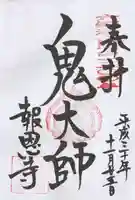 奉拝
平成二十年
十一月廿三日
鬼大師
報恩寺